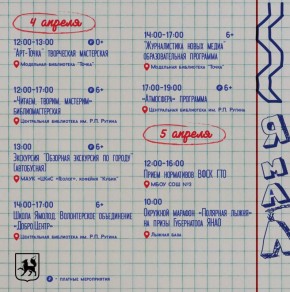 4 апреля
12:00-13:00 0+
"Арт-Точка" творческая мастерская
Модельная библиотека "Точка"
12:00-17:00 6+
«Читаем, творим, мастерим»
библиомастерская
Центральная библиотека им. Р.П. Ругина
13:00 6+
Экскурсия "Обзорная экскурсия по городу"
(автобусная)
14:00-17:00 6+
Школа Ямолод. Волонтерское объединение
«ДоброЦентр»
Центральная библиотека им. Р.П. Ругина
14:00-17:00 6+
"Журналистика новых медиа"
образовательная программа
Модельная библиотека "Точка"
17:00-19:00 6+
«Атмосфера» программа
Центральная библиотека им. Р.П. Ругина
5 апреля
12:00-16:00
Прием нормативов ВФСК ГТО
МБОУ СОШ №2
10:00
Окружной марафон «Полярная лыжня»
на призы Губернатора ЯНАО
Лыжная база
- платные мероприятия
ЯМАЛ